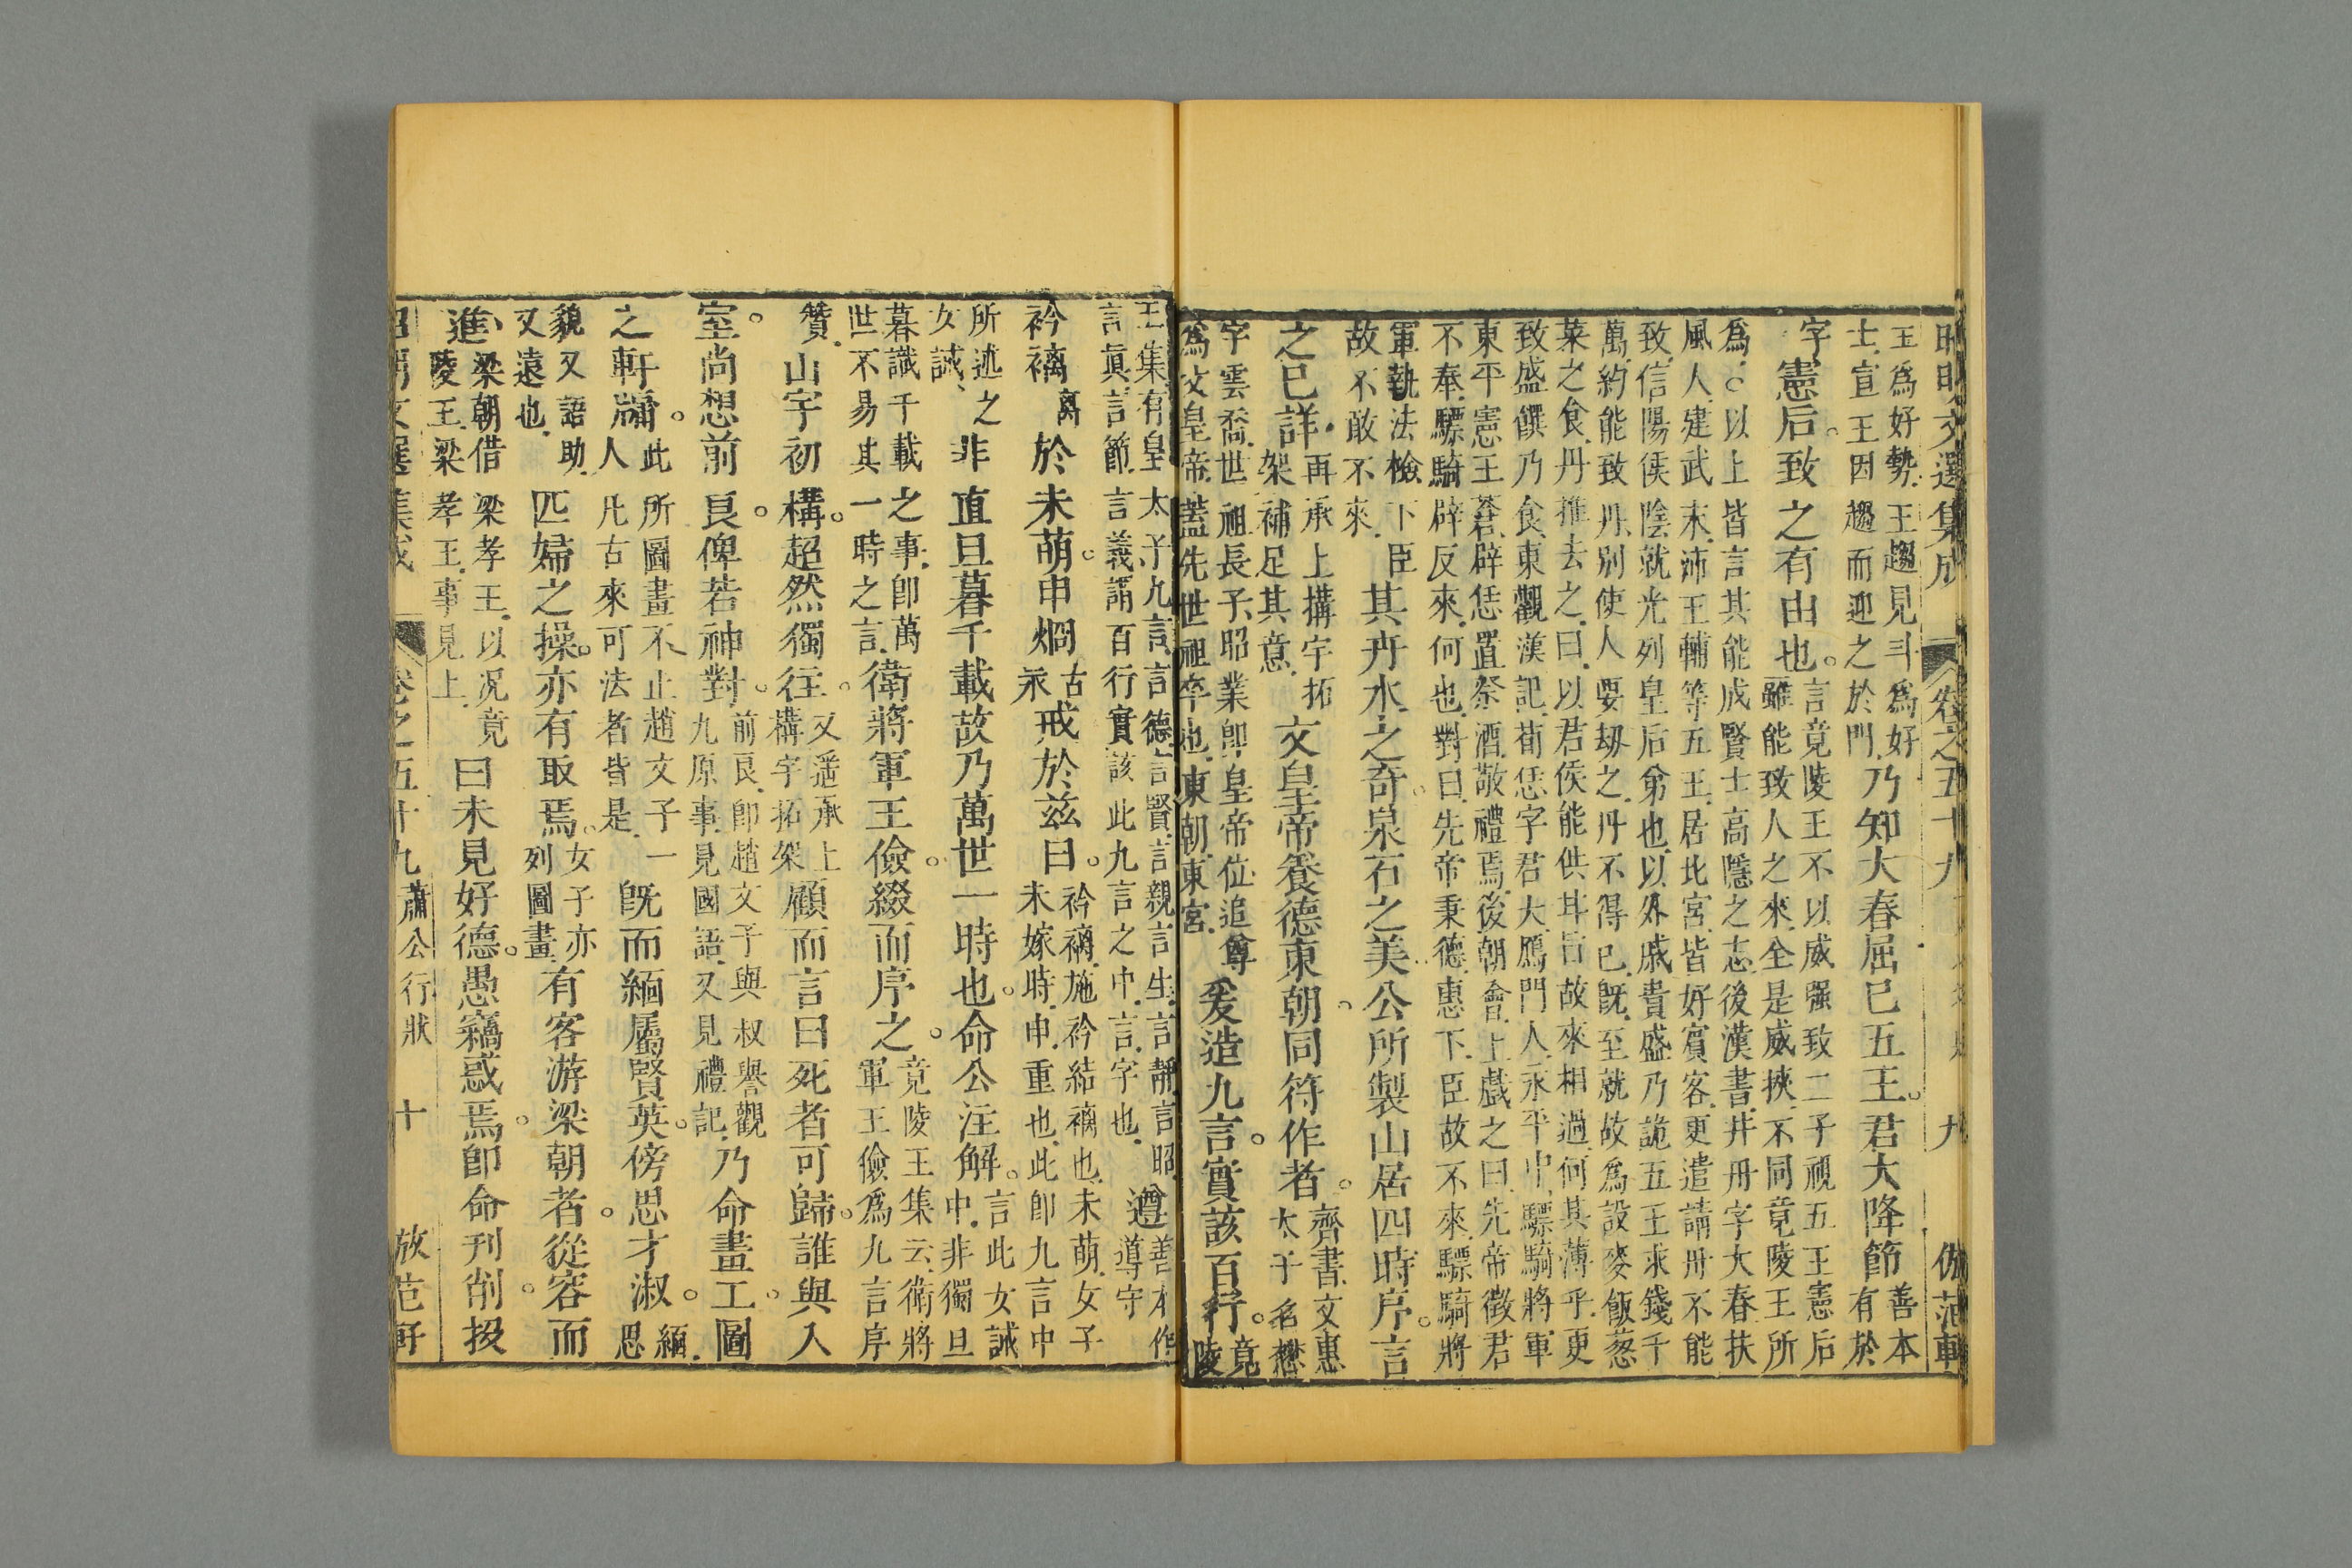 昭明文選集成 卷之五十九 九
王爲好勢王趨見斗爲好
士宣王因趨而迎之於門
乃知大春屈已五王。君大降節
善本
有於
字憲后。致之有由也。
言竟陵王不以威强致二子視五王憲后
雖能致人之來全是威挾不同竟陵王所
爲○以上皆言其能成賢士高隱之志後漢書井丹字大春扶
風人建武末沛王輔等五王居北宮皆好賓客更遣請丹不能
致信陽侯陰就光列皇后弟也以外戚貴盛乃詭五王求錢千
萬約能致丹別使人要刼之丹不得已旣至就故爲設麥飯葱
菜之食丹推去之曰以君侯能供甘旨故來相過何其薄乎更
致盛饌乃食東觀漢記荀恁字君大鴈門人永平中驃騎將軍
東平憲王蒼辟恁置祭酒敬禮焉後朝會上戲之曰先帝徵君
不奉驃騎辟反來何也對曰先帝秉德惠下臣故不來驃騎將
軍執法檢下臣
故不敢不來
其丹水之奇。泉石之美。公所製山居四時序。言
之已詳。
再承上搆宇拓
架補足其意
文皇帝養德東朝。同符作者。
齊書文惠
太子名懋
字雲喬世祖長子昭業卽皇帝位追尊
爲文皇帝蓋先世祖卒也東朝東宮
爰造九言。實該百行。
竟
陵
王集有皇太子九言言德言賢言親言生言靜言昭
言眞言節言義謂百行實該此九言之中言字也
遵
善本作
導守
衿褵
離
於未萌。申烱
古
永
戒於兹日。
衿褵施衿結褵也未萌女子
未嫁時申重也此卽九言中
所述之
女誡
非直旦暮千載故乃萬世一時也。命公注解。
言此女誡
中非獨旦
暮識千載之事卽萬
世不易其一時之言
衛將軍王儉。綴而序之。
竟陵王集云衛將
軍王儉爲九言序
贊
山宇初構。超然獨往。
又遥承上
構宇拓架
顧而言曰死者可歸。誰與入
室。尚想前良。俾若神對。
前良卽趙文子與叔譽觀
九原事見國語又見禮記
乃命畫工。圖
之軒牖。
此所圖畫不止趙文子一
人凡古來可法者皆是
旣而緬屬賢英。傍思才淑。
緬
思
貌又語助
又遠也
匹婦之操。亦有取焉。
女子亦
列圖畫
有客游梁朝者。從容而
進
梁朝借梁孝王以况竟
陵王梁孝王事見上
曰未見好德。愚竊惑焉。卽命刊削。投
昭明文選集成 卷之五十九 蕭公行狀 十